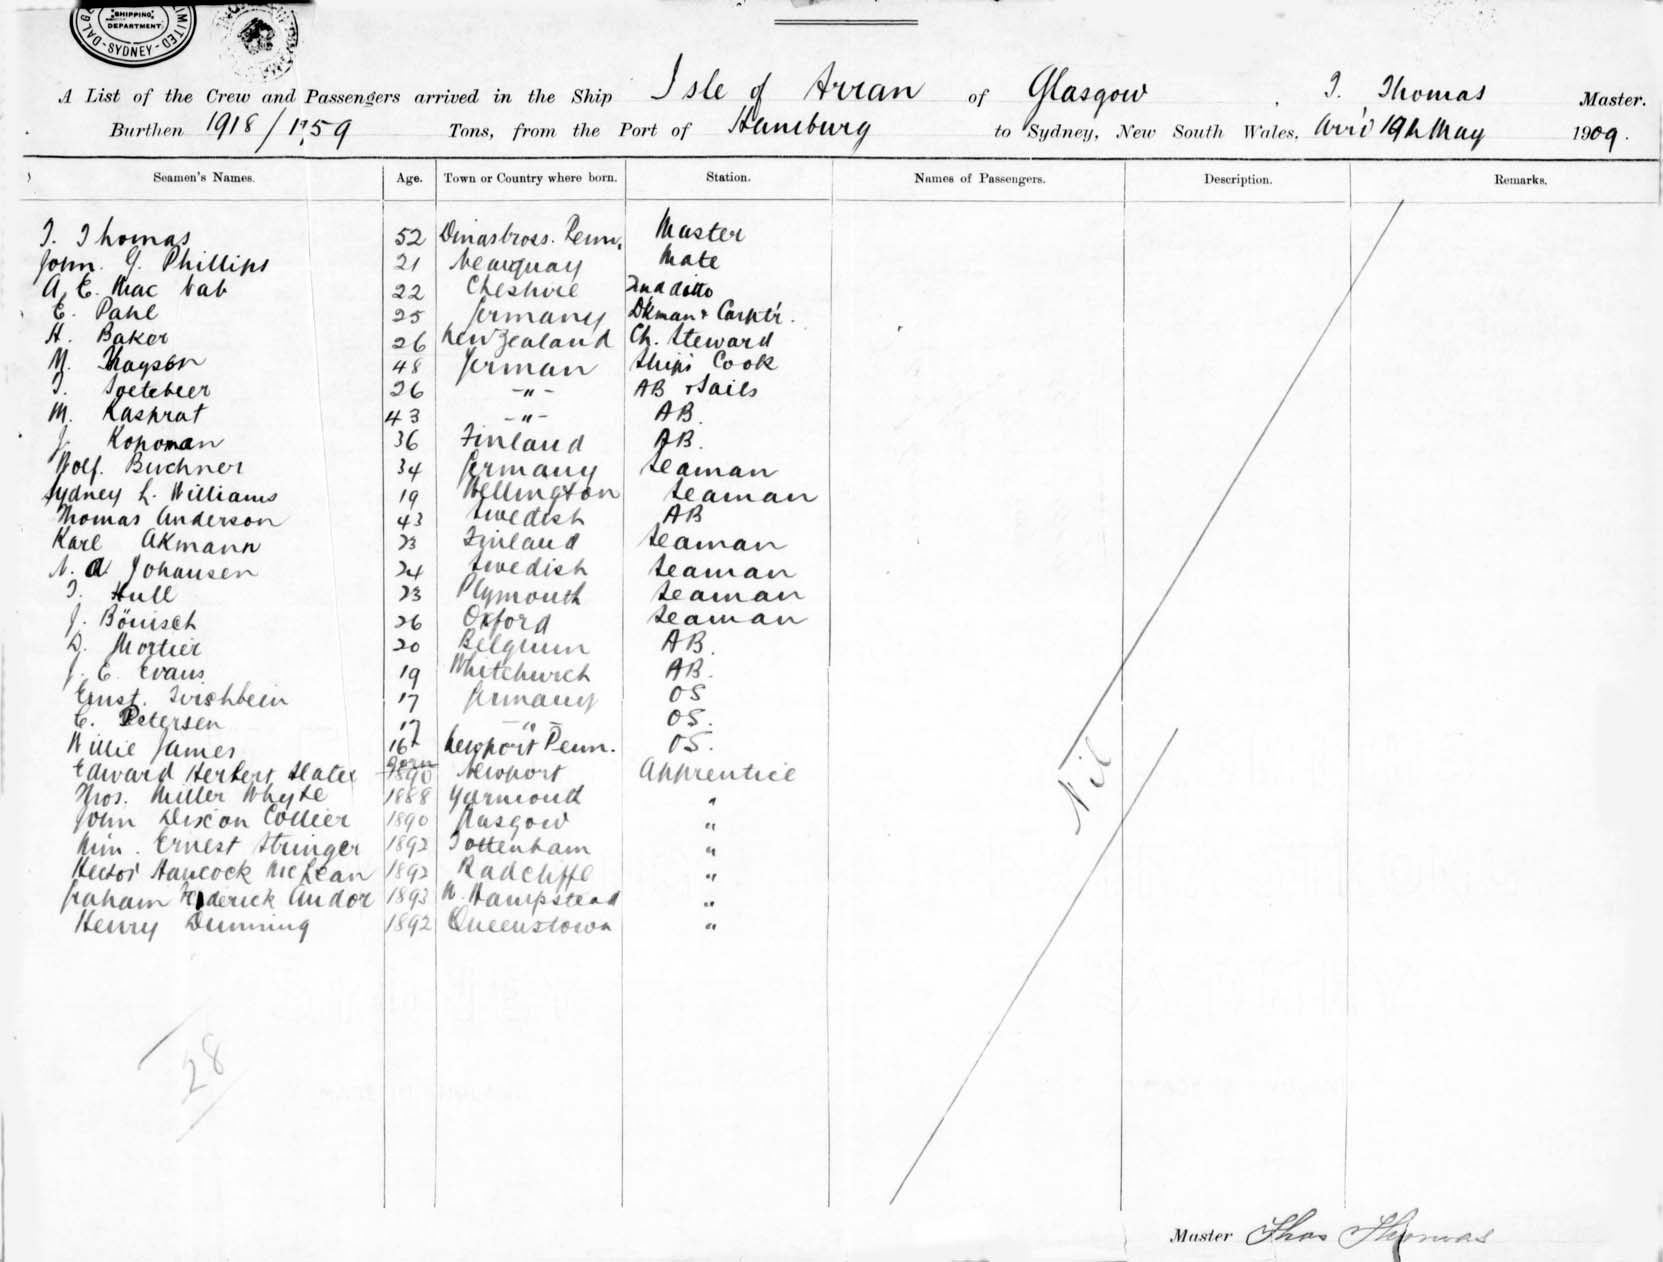 SHIPPING
DEPARTMENT
DALG LIMITED
SYDNEY
A List of the Crew and Passengers arrived in the Ship Isle of Arran of Glasgow, T. Thomas Master.
Burthen 1918/1759 Tons, from the Port of Hamburg to Sydney, New South Wales, Arr'd 19th May 1909.
Seamen's Names. Age. Town or Country where born. Station. Names of Passengers. Description. Remarks.
T. Thomas 52 Dinascross. Penn. Master
John. G. Phillips 21 Newquay Mate
A. E. Mac Nab 22 Cheshire 2nd ditto
E. Pahl 25 Germany D'kman & Carptr.
H. Baker 26 New Zealand Ch. Steward
M. Thayson 48 German Ship's Cook
T. Soetebeer 26 -"- AB & Sails
M. Kasprat 43 -"- AB.
J. Koponan 36 Finland AB.
Wolf. Buchner 34 Germany Seaman
Sydney L. Williams 19 Wellington Seaman
Thomas Anderson 43 Swedish AB
Karl Akmann 23 Finland Seaman
N. A. Johansen 24 Swedish Seaman
T. Hull 23 Plymouth Seaman
J. Bönisch 26 Oxford Seaman
D. Mortier 20 Belgium AB.
J. E. Evans 19 Whitchurch AB.
Ernst. 17 Germany OS
C. Petersen 17 -"- OS.
Willie James 16 Newport Penn. OS.
Born
Edward Herbert Slater 1890 Newport Apprentice
Thos. Miller Whyte 1888 Yarmouth "
John Dixon Collier 1890 Glasgow "
Wm. Ernest Stringer 1892 Tottenham "
Hector Hancock McLean 1892 Radcliffe "
Graham Frederick Andor 1893 W. Hampstead "
Henry Dunning 1892 Queenstown "
Nil
28
Master Thos Thomas